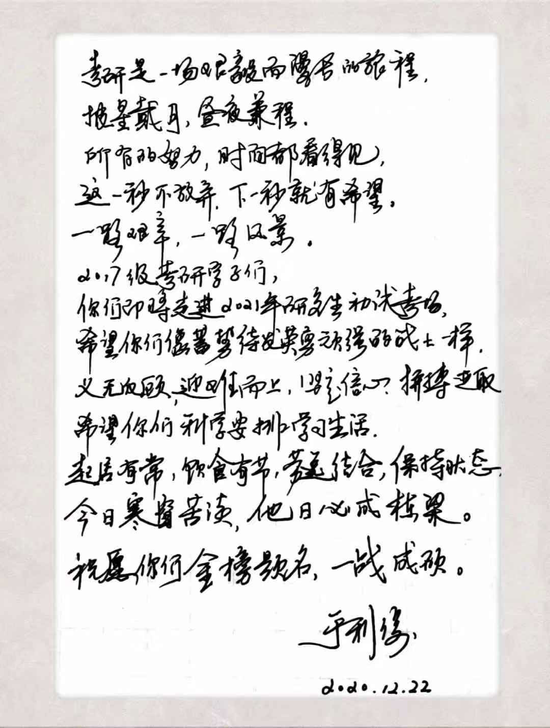 考研是一场艰毅而漫长的旅程，
披星戴月，昼夜兼程.
所有的努力，时间都看得见，
这一秒不放弃，下一秒就有希望。
一路艰辛，一路风景。
2017级考研学子们，
你们即将走进2021年研究生初试考场，
希望你们像蓄势待发英勇顽强的战士一样，
义无反顾，迎难而上，坚定信心，拼搏进取
希望你们科学安排学习生活.
起居有常，饮食有节，劳逸结合，保持状态，
今日寒窗苦读，他日必成栋梁。
祝愿你们金榜题名，一战成硕。
于利
2020.12.22